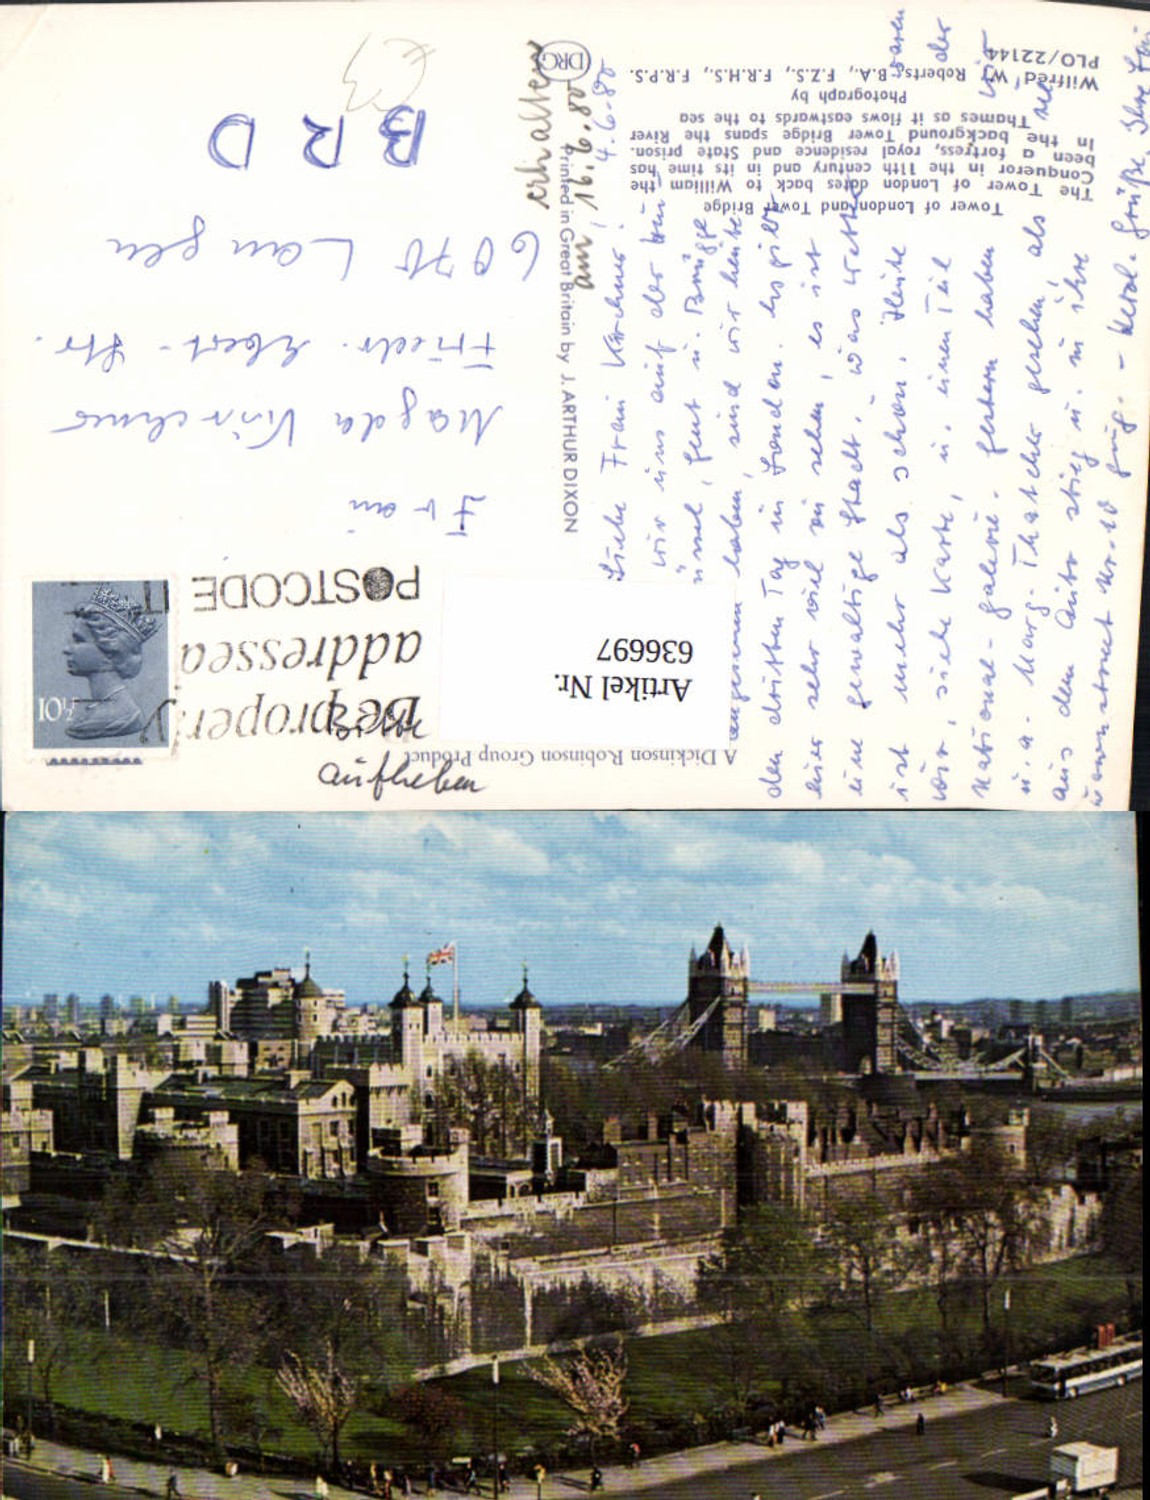 Tower of London and Tower Bridge
The Tower of London dates back to William the
Conqueror in the 11th century and in its time has
been a fortress, royal residence and State prison.
In the background Tower Bridge spans the River
Thames as it flows eastwards to the sea
Photograph by
Wilfred W. Roberts, B.A., F.Z.S., F.R.H.S., F.R.P.S.
PLO/22144
DRG
Printed in Great Britain by J. ARTHUR DIXON
A Dickinson Robinson Group Product
Artikel Nr.
636697
Be properly
addressed
POSTCODE IT
10½P
aufheben
erhalten
am 16.6.80
Frau
Magda Kirschner
Friedr. Ebert-Str.
6070 Langen
BRD
4.6.80
Liebe Frau Kirschner!
wir uns auf der
Insel, Gent u. Brügge
angesehen haben, sind wir heute
den dritten Tag in London. Es gibt
hier sehr viel zu sehen, es ist
eine gewaltige Stadt. Das Wetter
ist mehr als schön. Heute waren
wir, siehe Karte, in einem Teil der
National-Galerie. Gestern haben wir
u.a. Marg. Thatcher gesehen, als sie
aus dem Auto stieg u. in ihre
Downstreet Nr. 10 ging. - Herzl. Grüße, Ihre